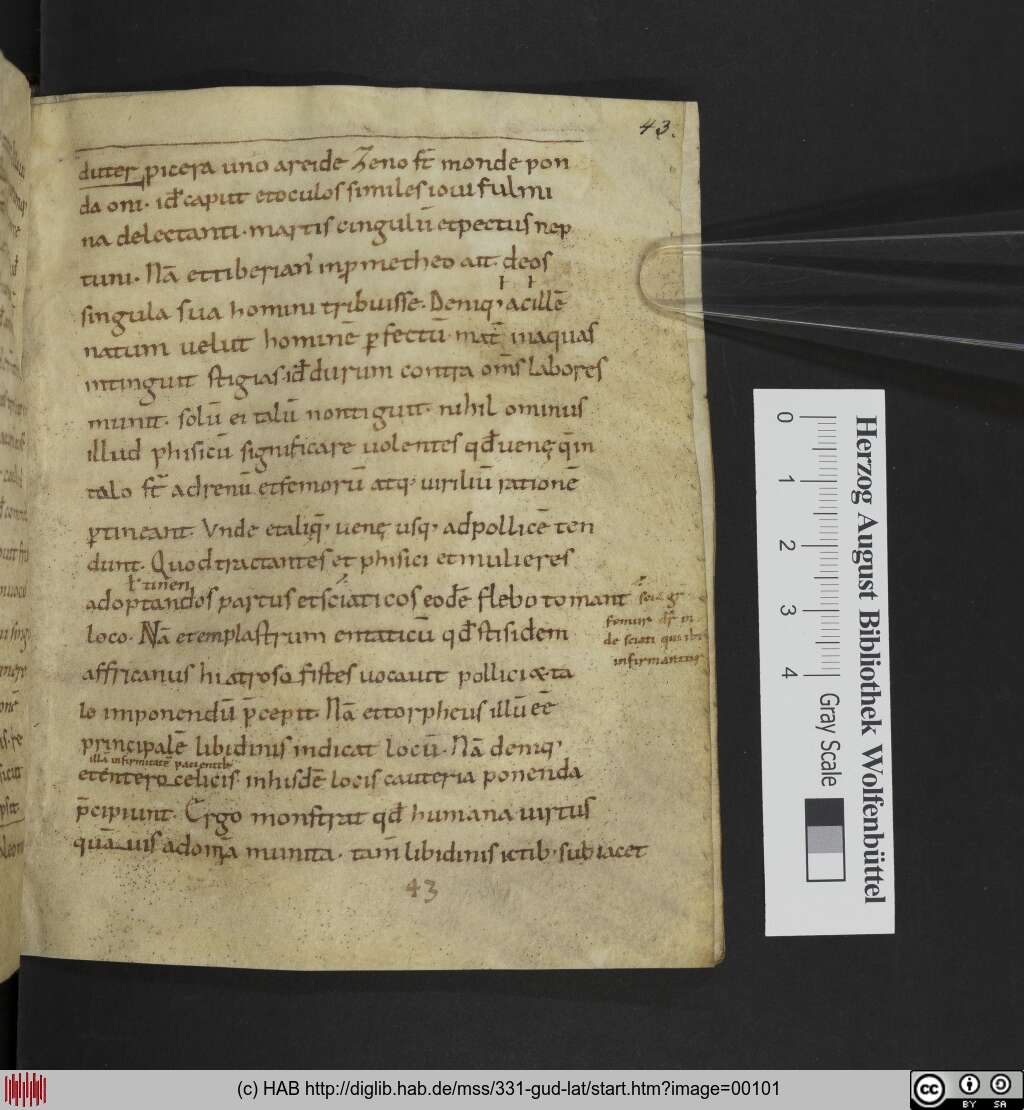 43.
diuter picera uno areide Zeno ft̄ monde pon
da oni· id̄ caput et oculos similes ioui fulmi
na delectanti· martis cingulū et pectus nep
tuni· Nā et tiberian̄ in p̱metheo ait· deos
singula sua homini tribuisse· Deniq; acillē
natum uelut hominē ꝑfectū· mat̄ in aquas
intinguit stigias· id̄ durum contra om̄s labores
munit· solū ei talū non tiguit· nihil ominus
illud phisicū significare uolentes qd̄ uenę q̄ in
talo ft̄ ad renū et femorū atq; uiriliū rationē
ꝑtineant· Vnde et aliq̄; uenę usq; ad pollicē ten
dunt· Quod tractantes et phisici et mulieres
ł tinen
ad optandos partus et sciaticos eodē flebotomant
loco· Nā et emplastrum entaticū qd̄ stisidem
affricanus hiatroso fistes uocauit pollici & ta
lo imponendū p̄cepit· Nā et torpheus illū eē
principalē libidinis indicat locū· Nā deniq;
illā infirmitatē patientib;
et entero celicis· in hisdē locis cauteria ponenda
p̄cipiunt· Ergo monstrat qd̄ humana uirtus
quāuis ad om̄a munita· tam̄ libidinis ictib; subiacet
femur
de sciati qui
infirmantur
43
0 1 2 3 4
Herzog August Bibliothek Wolfenbüttel
Gray Scale
(c) HAB http://diglib.hab.de/mss/331-gud-lat/start.htm?image=00101
cc BY SA